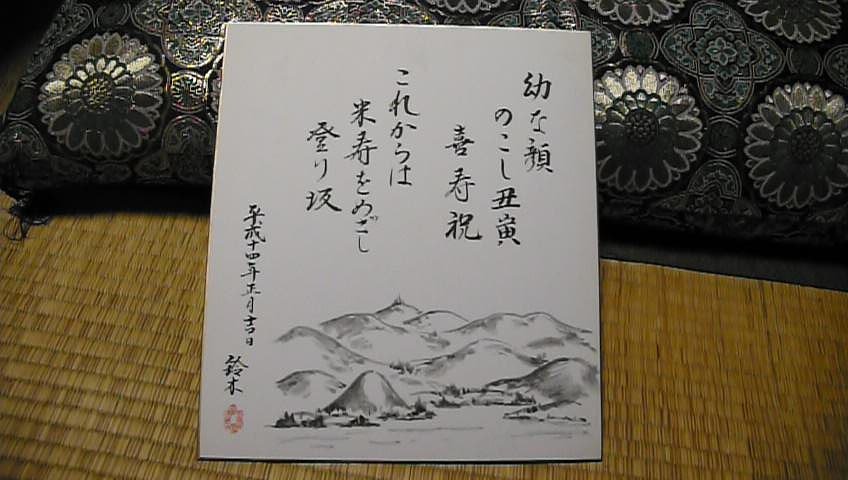 幼な顔
のこし丑寅
喜寿祝
これからは
米寿をめざし
登り坂
平成十四年正月吉日
鈴木